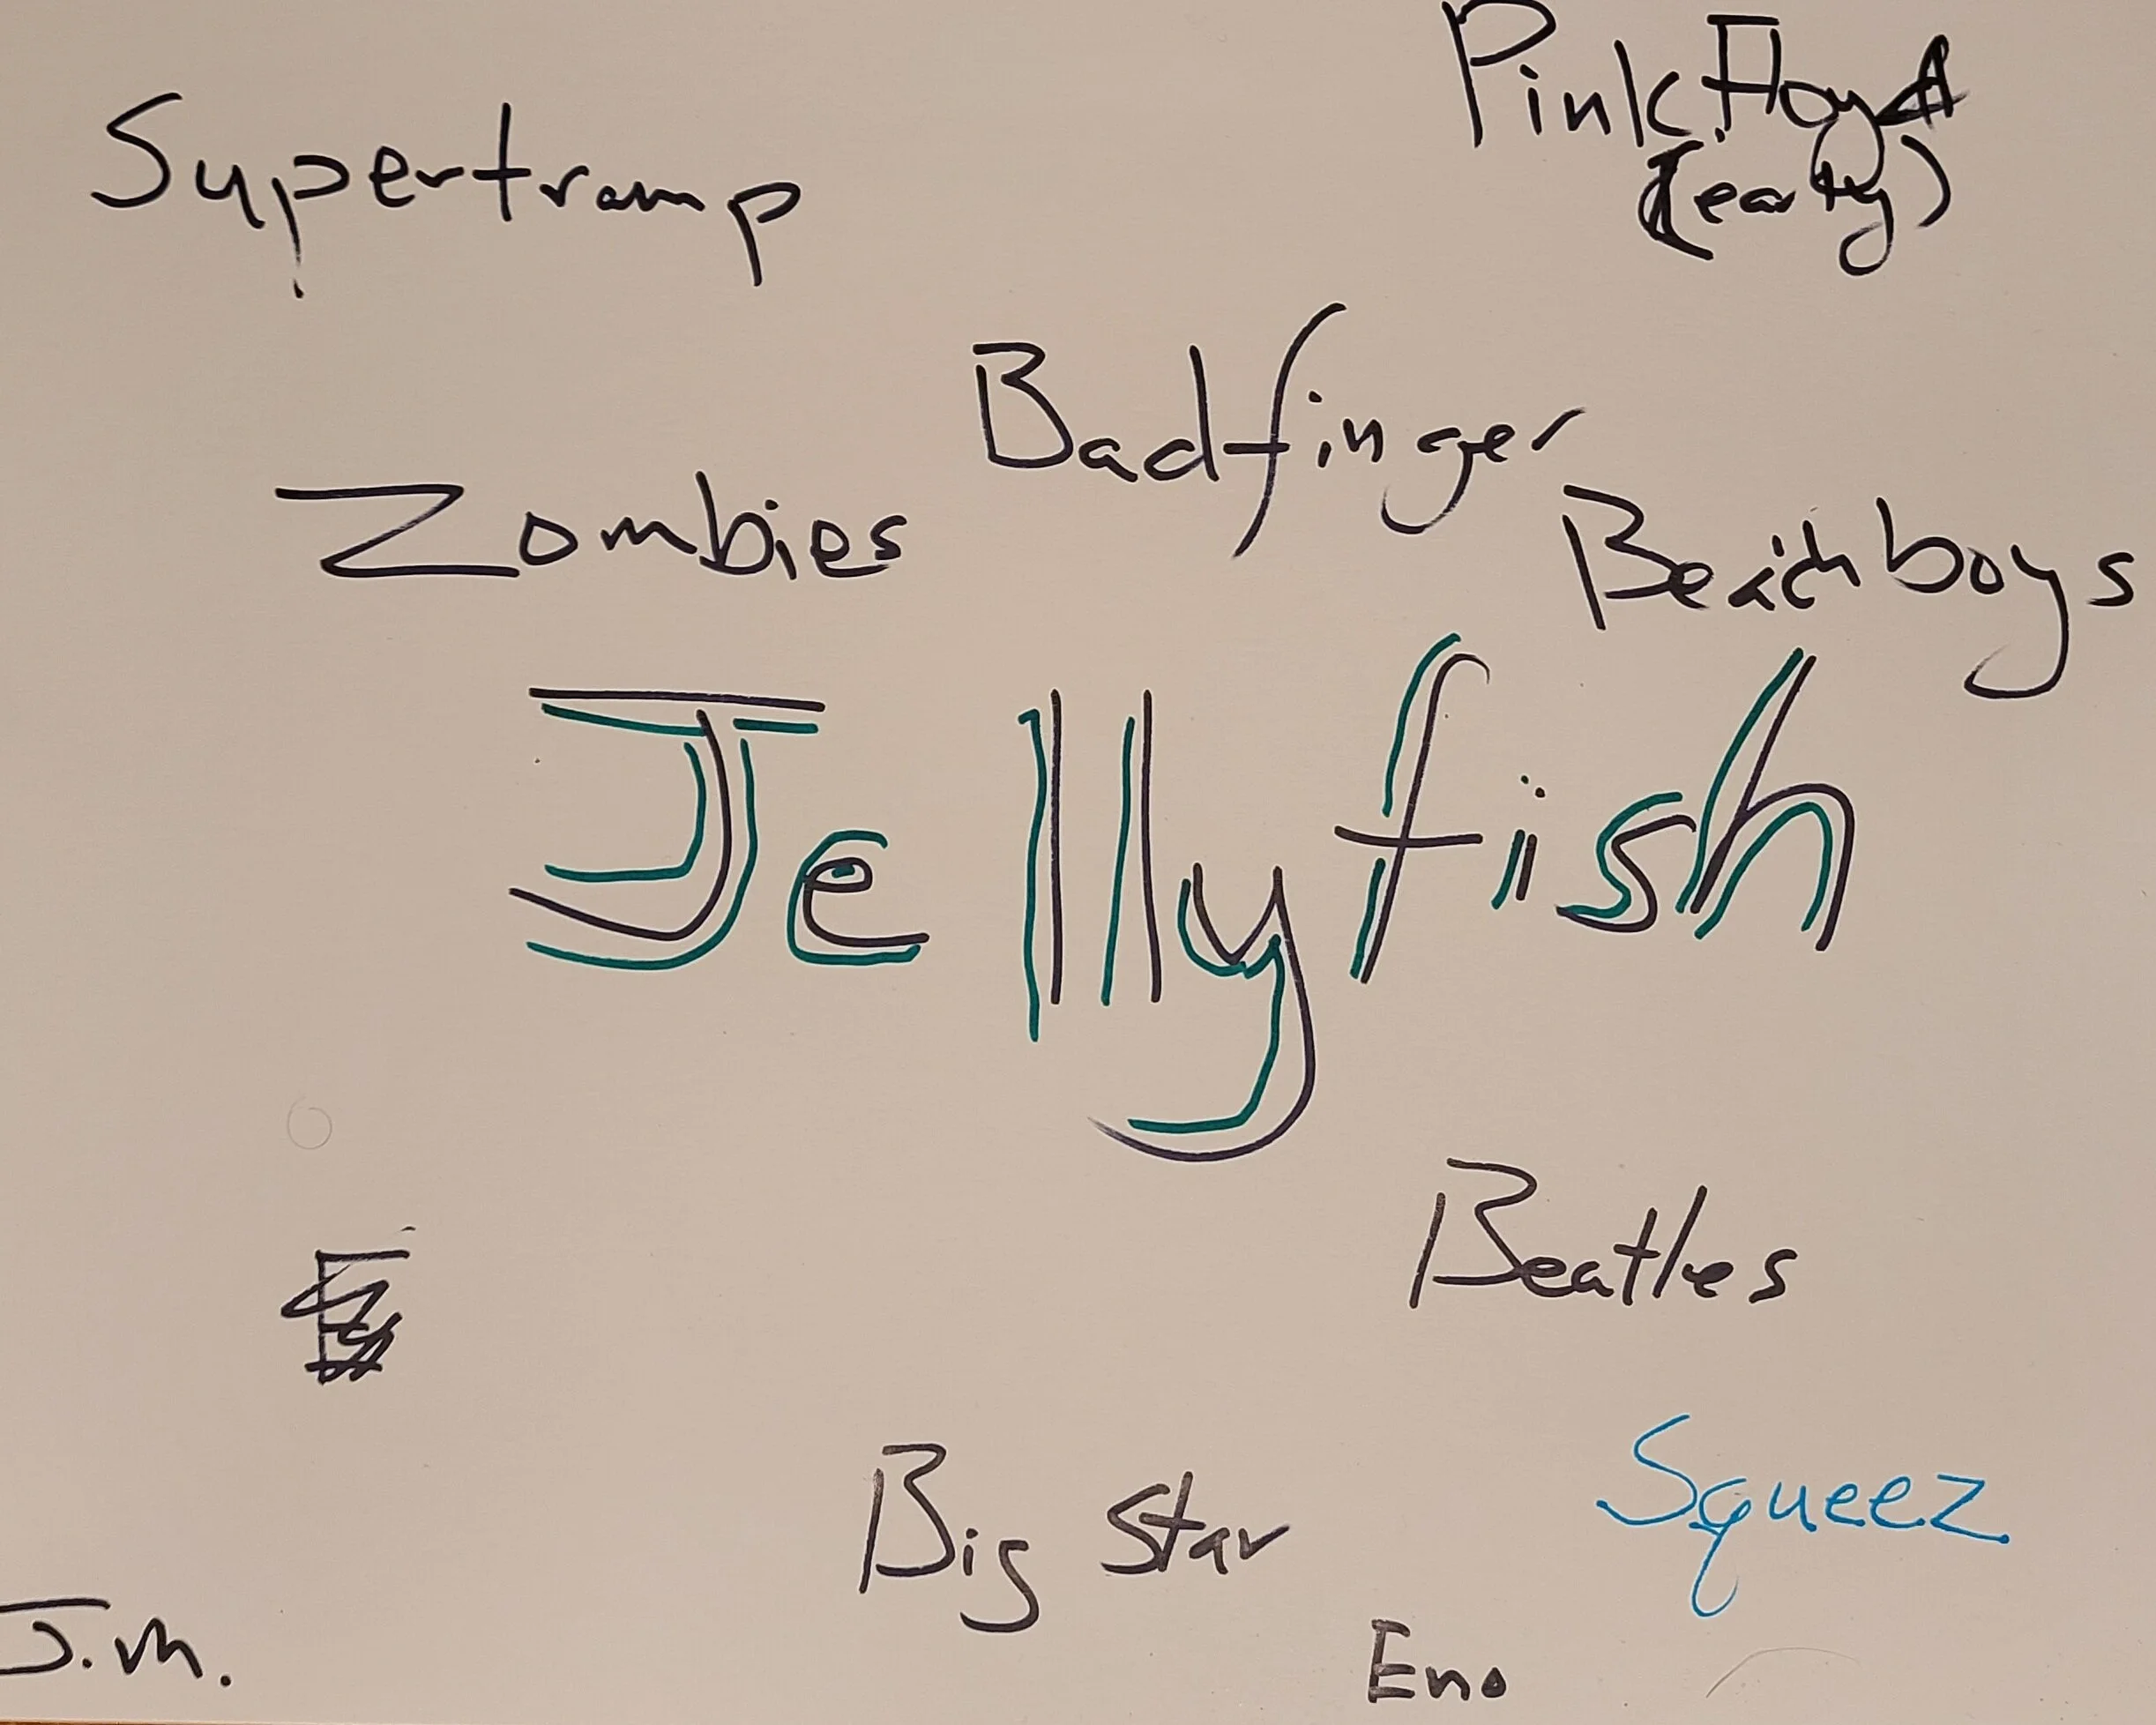 Pink Floyd
(early)
Supertramp
Badfinger
Zombies
Beachboys
Jellyfish
Beatles
Big Star
Squeez
J.M.
Eno